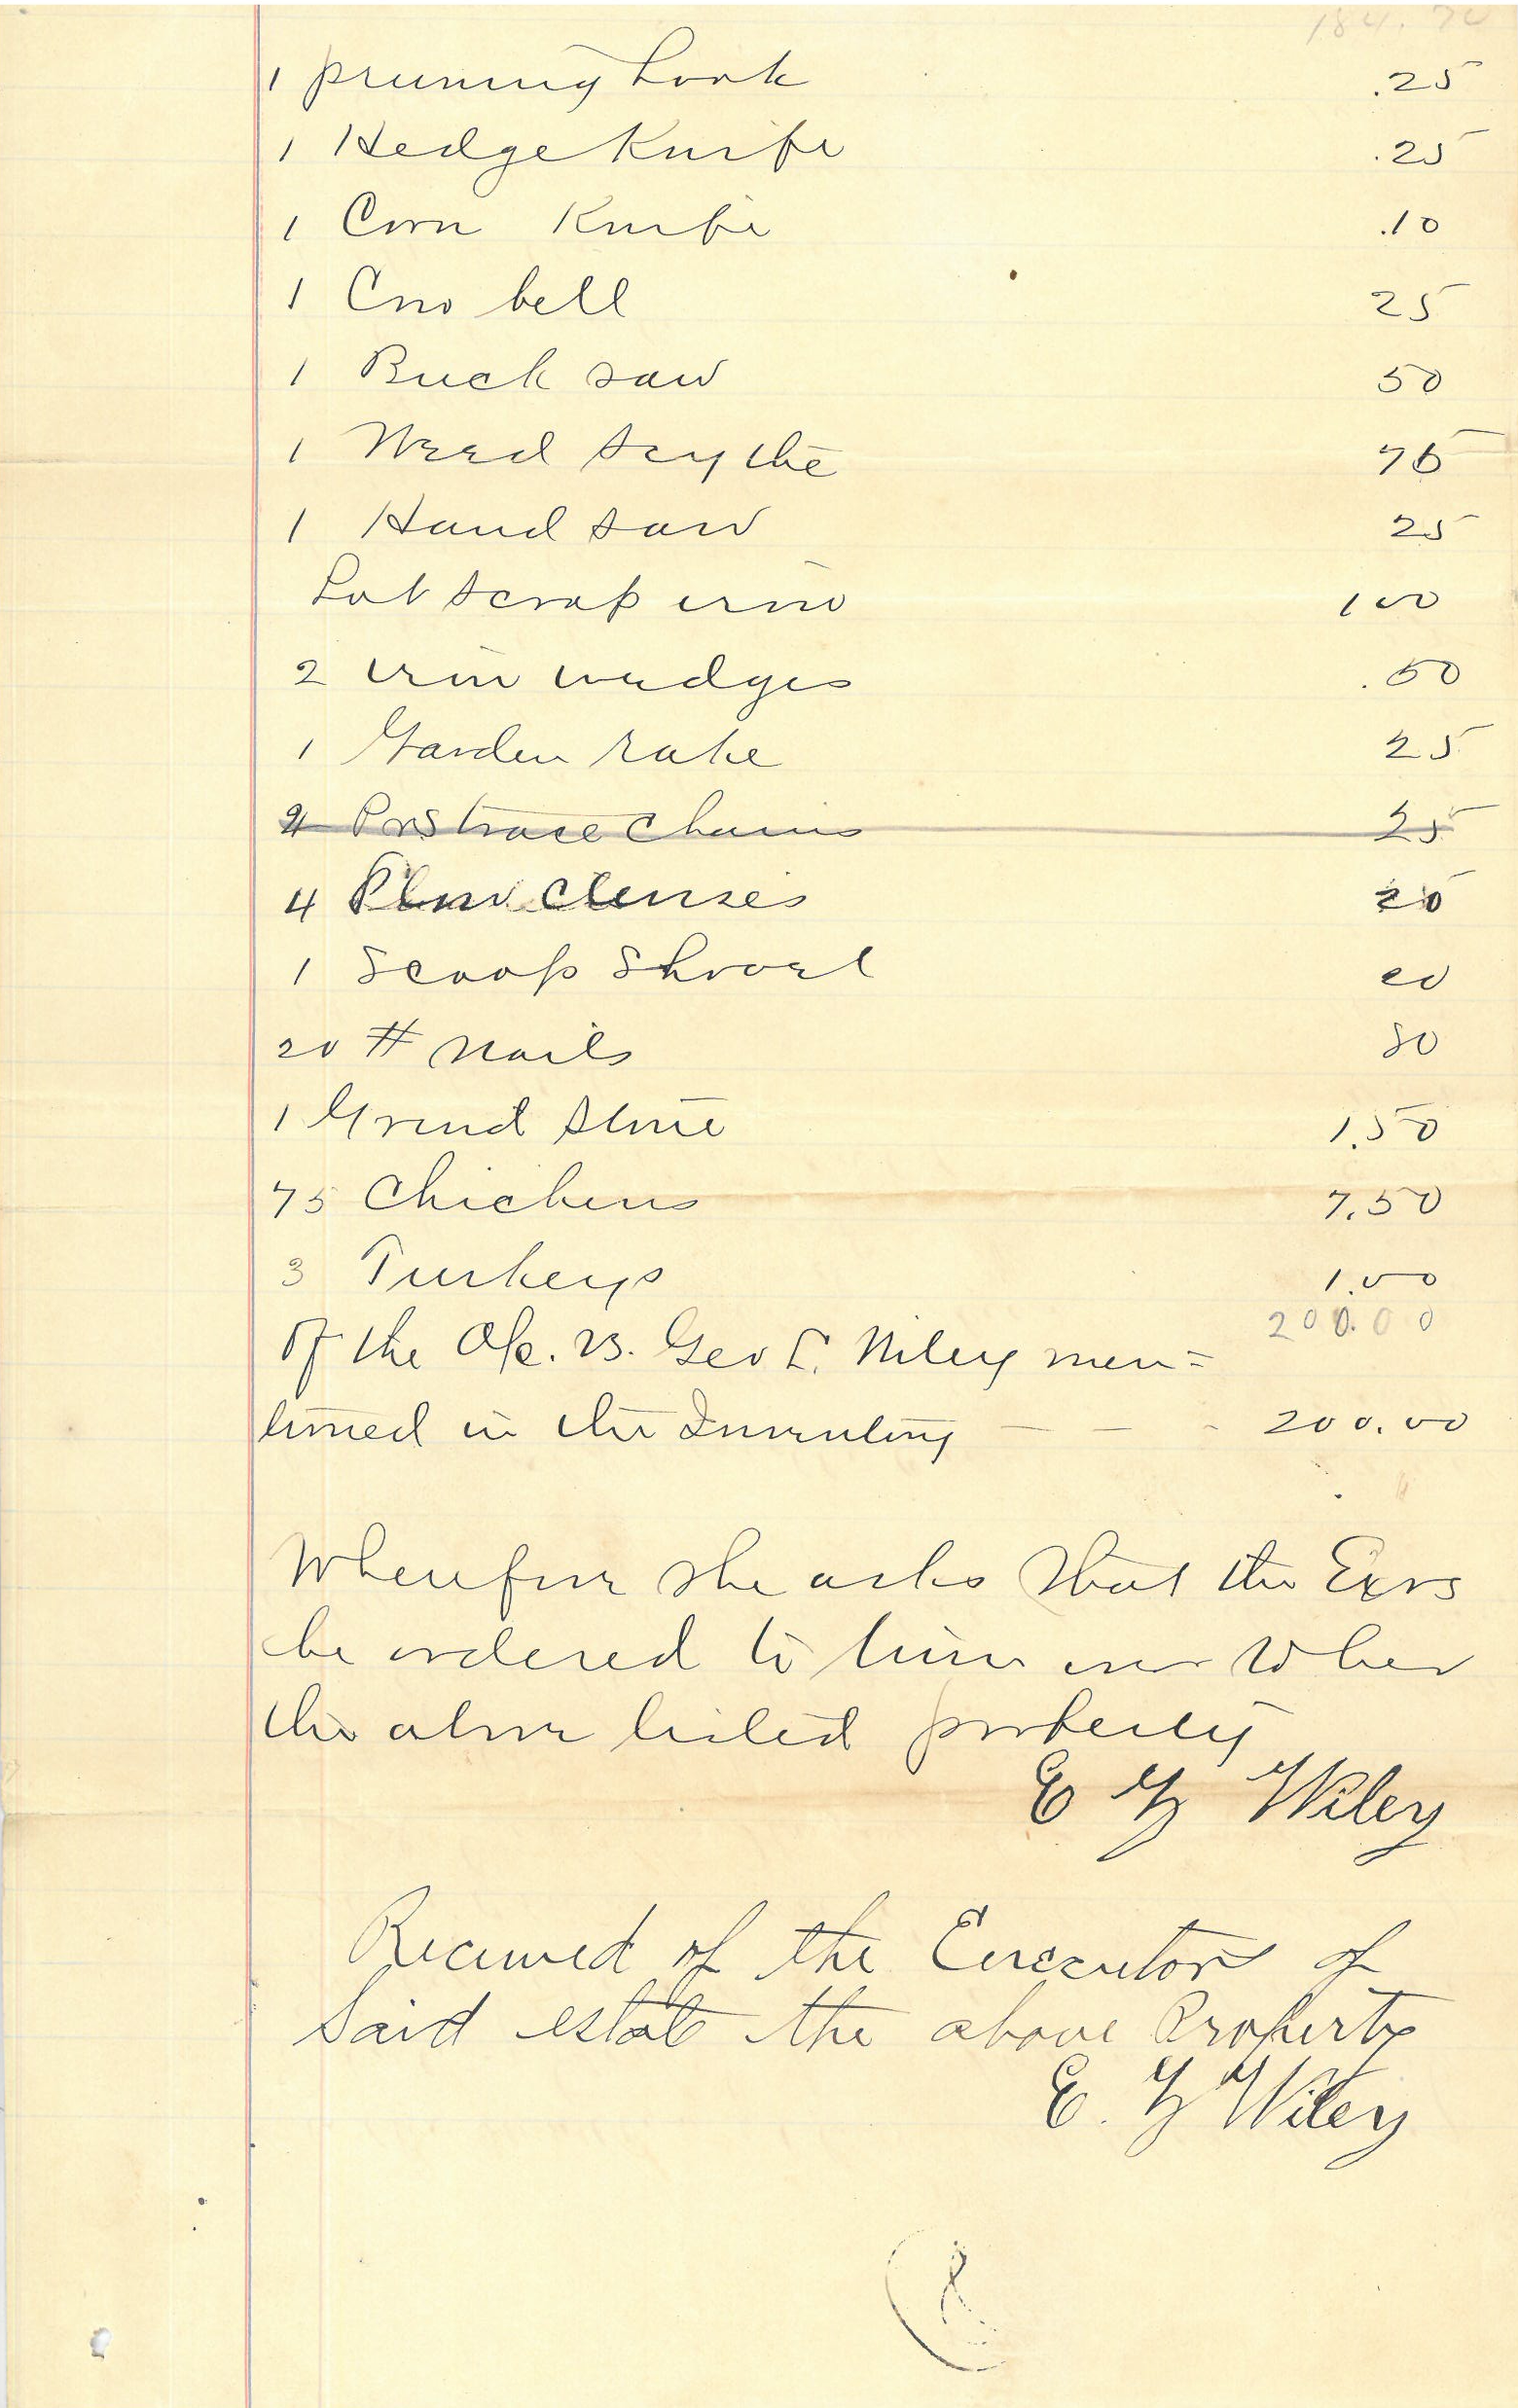 184.70
1 pruning hook .25
1 Hedge Knife .25
1 Corn Knife .10
1 Cow bell 25
1 Buck saw 50
1 Weed scythe 75
1 Hand saw 25
Lot scrap iron 100
2 iron wedges .50
1 Garden rake 25
2 Prs trace chains 25
4 Plow Clevises 20
1 Scoop Shovel 20
20 # nails 80
1 Grind stone 1.50
75 Chickens 7.50
3 Turkeys 1.00
200.00
Of the a/c. vs. Geo L. Wiley men=
tioned in the Inventory - - - 200.00
Wherefore she asks that the Exrs
be ordered to turn over to her
the above listed property
E Y Wiley
Received of the Executors of
Said estate the above Property
E. Y Wiley